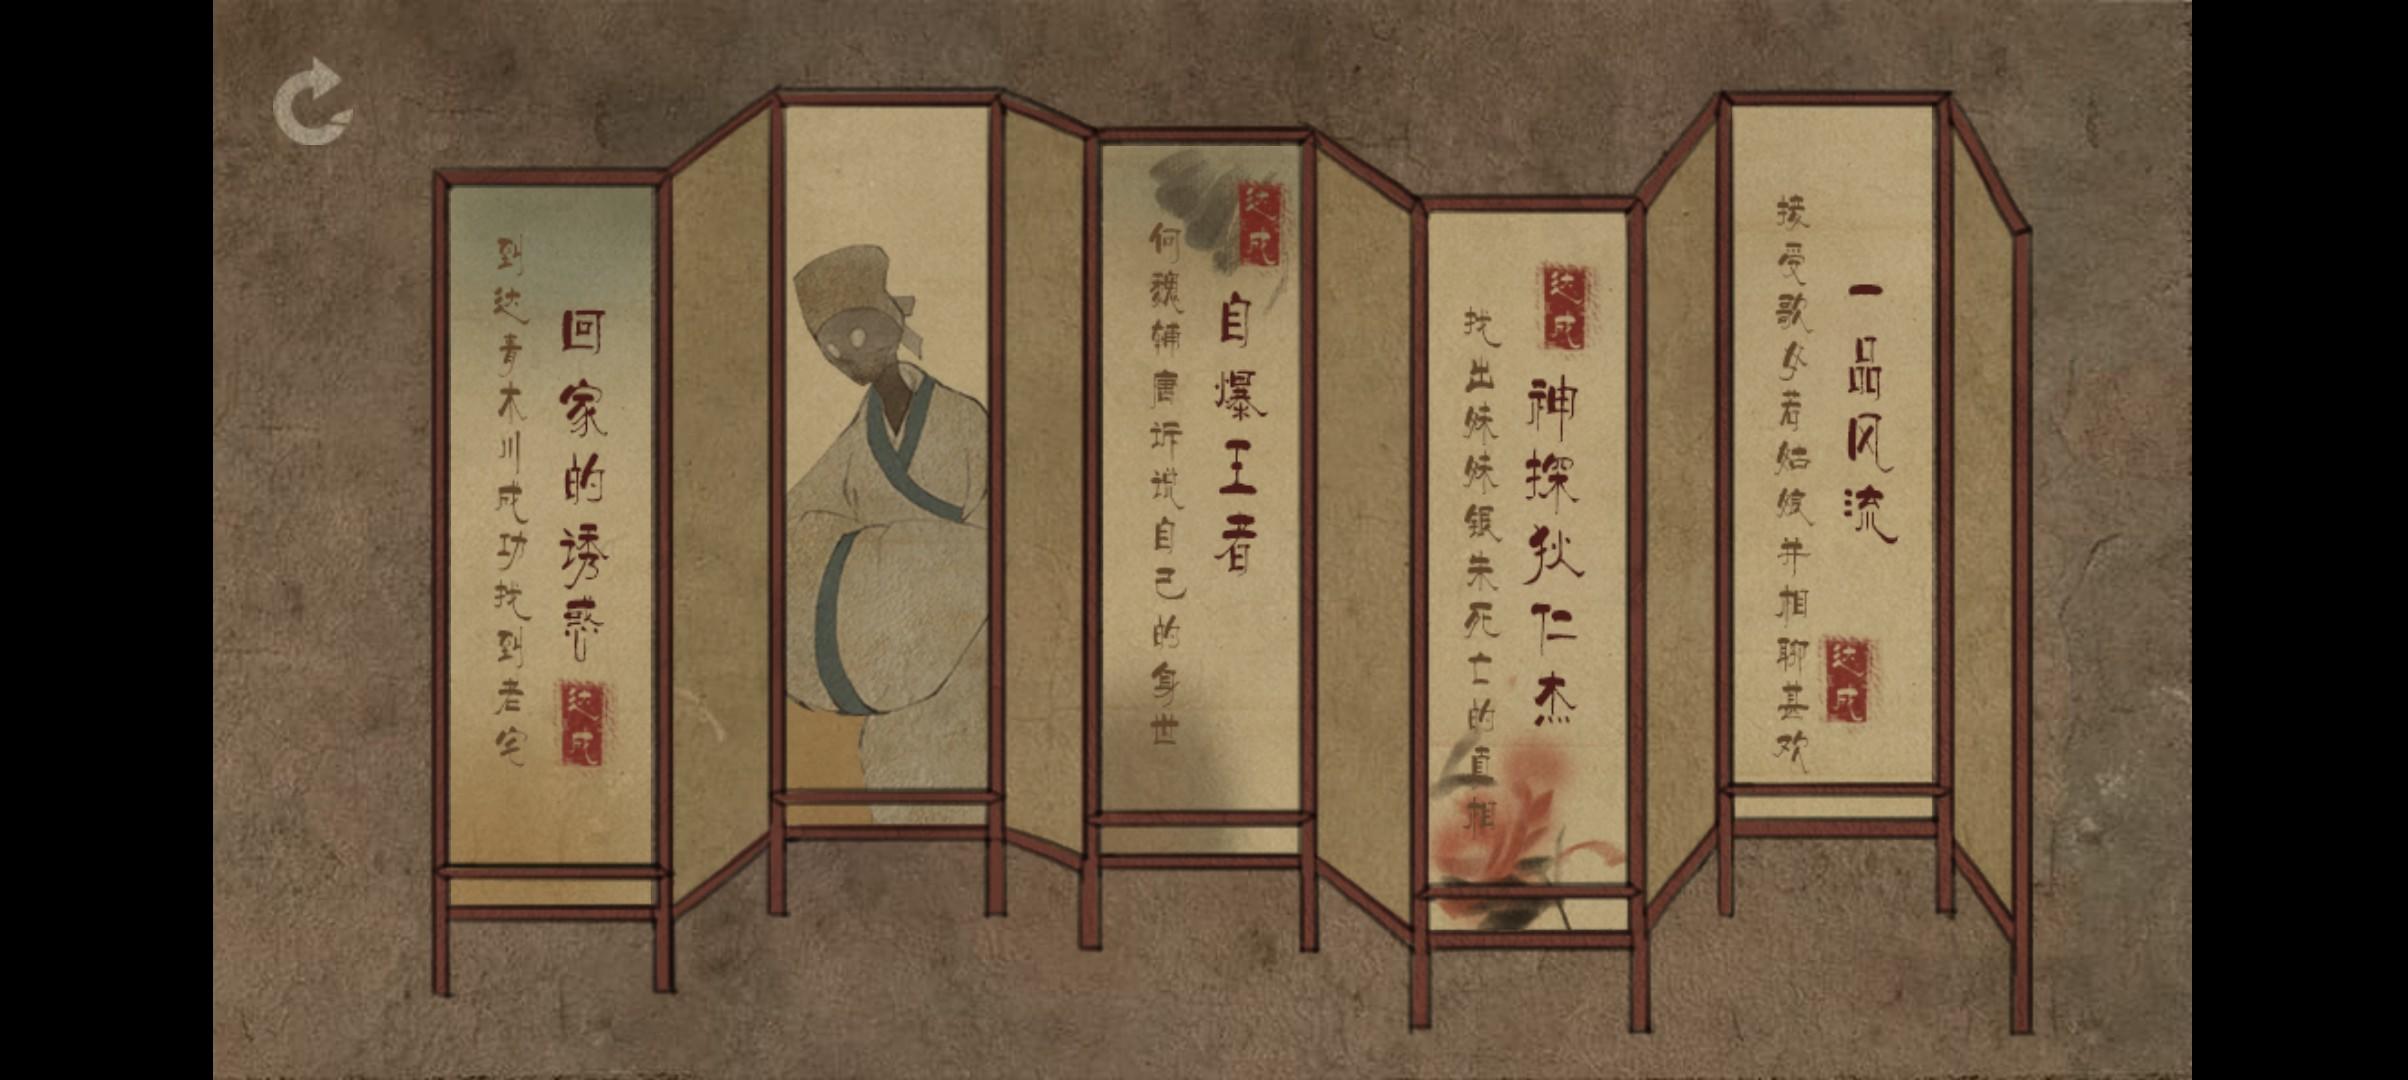 回家的诱惑
到达青木川成功找到老宅
达成
达成
自爆王者
何魏辅唐诉说自己的身世
达成
神探狄仁杰
找出妹妹银朱死亡的真相
一品风流
接受歌女若姑娘并相聊甚欢
达成